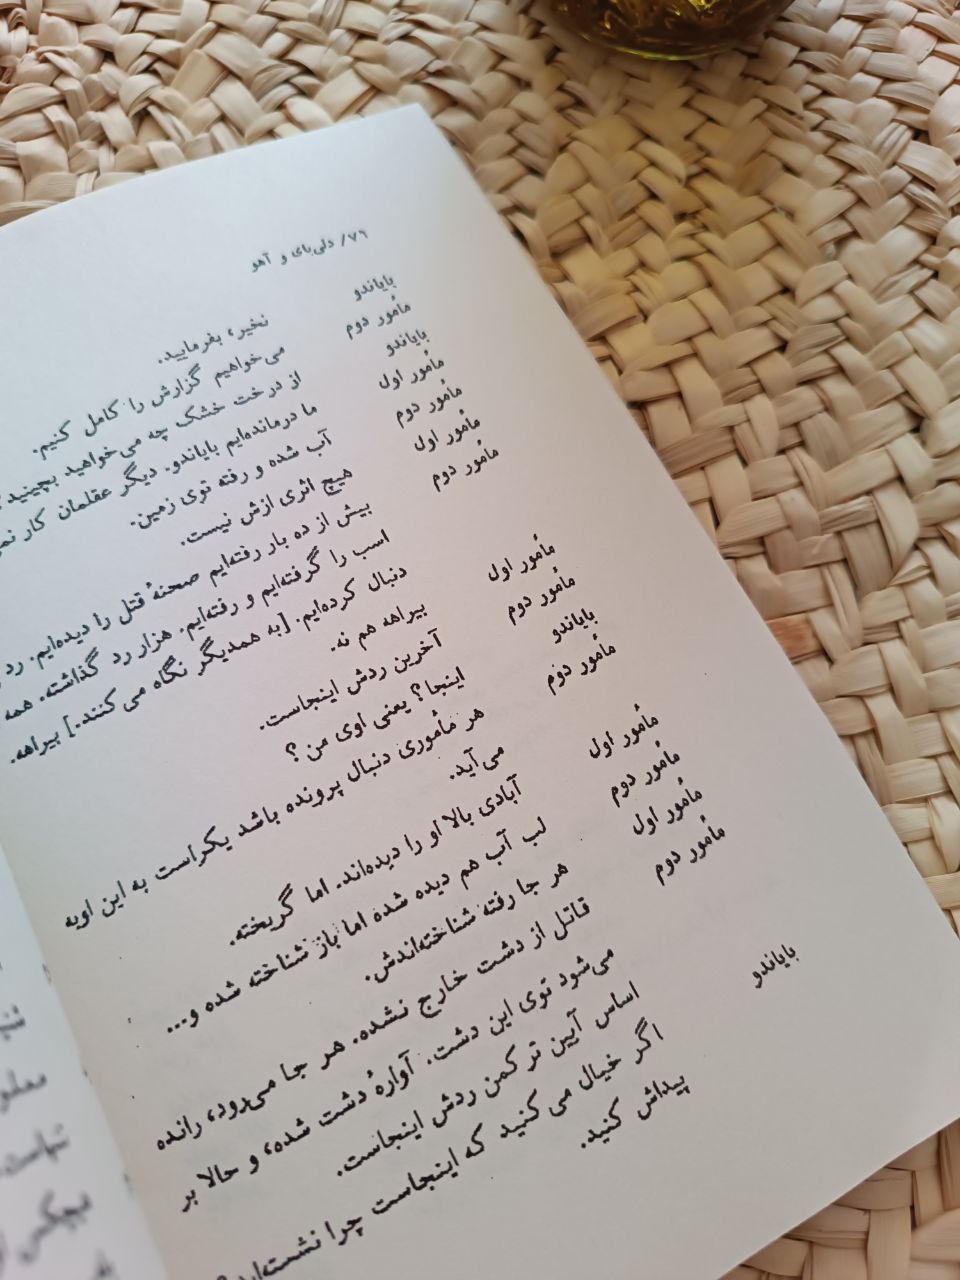 ۷۶/ دلی‌بای و آهو
بایاندو نخیر، بفرمایید.
مأمور دوم می‌خواهیم گزارش را کامل کنیم.
بایاندو از درخت خشک چه می‌خواهید بچینید
مأمور اول ما درمانده‌ایم بایاندو. دیگر عقلمان کار
مأمور دوم آب شده و رفته توی زمین.
مأمور اول هیچ اثری ازش نیست.
مأمور دوم بیش از ده بار رفته‌ایم صحنهٔ قتل را دیده‌ایم. رد
اسب را گرفته‌ایم و رفته‌ایم. هزار رد گذاشته. همه
دنبال کرده‌ایم. [به همدیگر نگاه می‌کنند.] بیراهه.
مأمور اول بیراهه هم نه.
مأمور دوم آخرین ردش اینجاست.
بایاندو اینجا؟ یعنی اوی من؟
مأمور دوم هر مأموری دنبال پرونده باشد یکراست به این اوبه
می‌آید.
مأمور اول آبادی بالا او را دیده‌اند. اما گریخته.
مأمور دوم لب آب هم دیده شده اما باز شناخته شده و...
مأمور اول هر جا رفته شناخته‌اندش.
مأمور دوم قاتل از دشت خارج نشده. هر جا می‌رود، رانده
می‌شود توی این دشت. آوارهٔ دشت شده، و حالا بر
اساس آیین ترکمن ردش اینجاست.
بایاندو اگر خیال می‌کنید که اینجاست چرا نشسته‌اید؟
پیداش کنید.